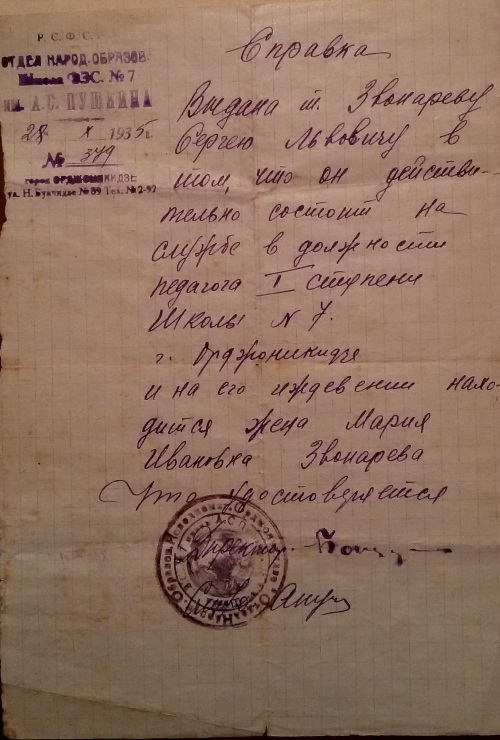 Р.С.Ф.С.Р.
ОТДЕЛ НАРОД. ОБРАЗОВ.
Школа ФЗС. № 7
им. А.С. ПУШКИНА
28 X 1935 г.
№ 379
город ОРДЖОНИКИДЗЕ
ул. Н. Буачидзе № 89 Тел. № 2-92
Справка
Выдана т. Звонареву
Сергею Львовичу в
том, что он действи-
тельно состоит на
службе в должности
педагога I ступени
Школы N 7.
г. Орджоникидзе
и на его иждевении нахо-
дится жена Мария
Ивановна Звонарева
Что удостоверяется
Директор